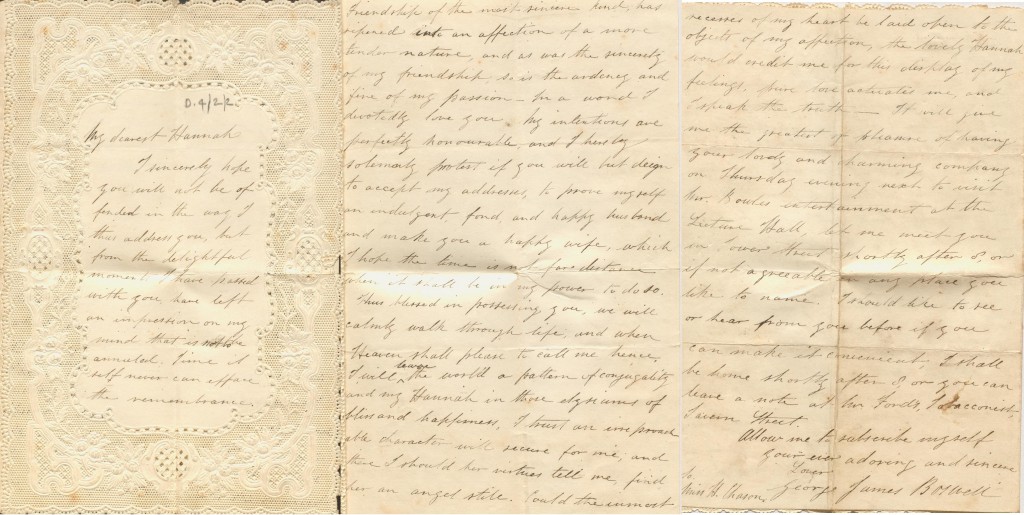 D.4/2/2
My dearest Hannah
I sincerely hope
you will not be of
fended in the way I
thus address you, but
from the delightful
moment I have passed
with you, have left
an impression on my
mind that is not to be
annulated. Time it
self never can efface
the remembrance,
Friendship of the most sincere kind, has
ripened into an affection of a more
tender nature, and as was the sincerity
of my friendship, so is the ardency and
fire of my passion – In a word I
devotedly love you. My intentions are
perfectly honourable, and I hereby
solemnly protest if you will but deign
to accept my addresses, to prove myself
an indulgent fond, and happy husband
and make you a happy wife, which
I hope the time is not far distance
when it shall be in my power to do so.
Thus blessed in possessing you, we will
calmly walk through life, and when
Heaven shall please to call me hence,
I will leave the world a pattern of conjugality
and my Hannah in those elyseums of
bliss and happiness, I trust an irreproach
able character will secure for me, and
there I should her virtues tell me, find
her an angel still. Could the inmost
recesses of my heart be laid open to the
objects of my affection, the lovely Hannah
would credit me for this display of my
feelings, pure love actuates me, and
I speak the truth — It will give
me the greatest of pleasure of having
your lovely and charming company
on Thursday evening next to visit
Mr. Bowles entertainment at the
Lecture Hall, let me meet you
in Tower Street shortly after 8, or
if not agreeable in any place you
like to name. I should like to see
or hear from you before if you
can make it convenient, I shall
be home shortly after 8 or you can
leave a note at Mr Fords, Tobacconist
Tavern Street.
Allow me to subscribe myself
your ever adoring and sincere
Lover
George James Boswell
To
Miss H. Chason